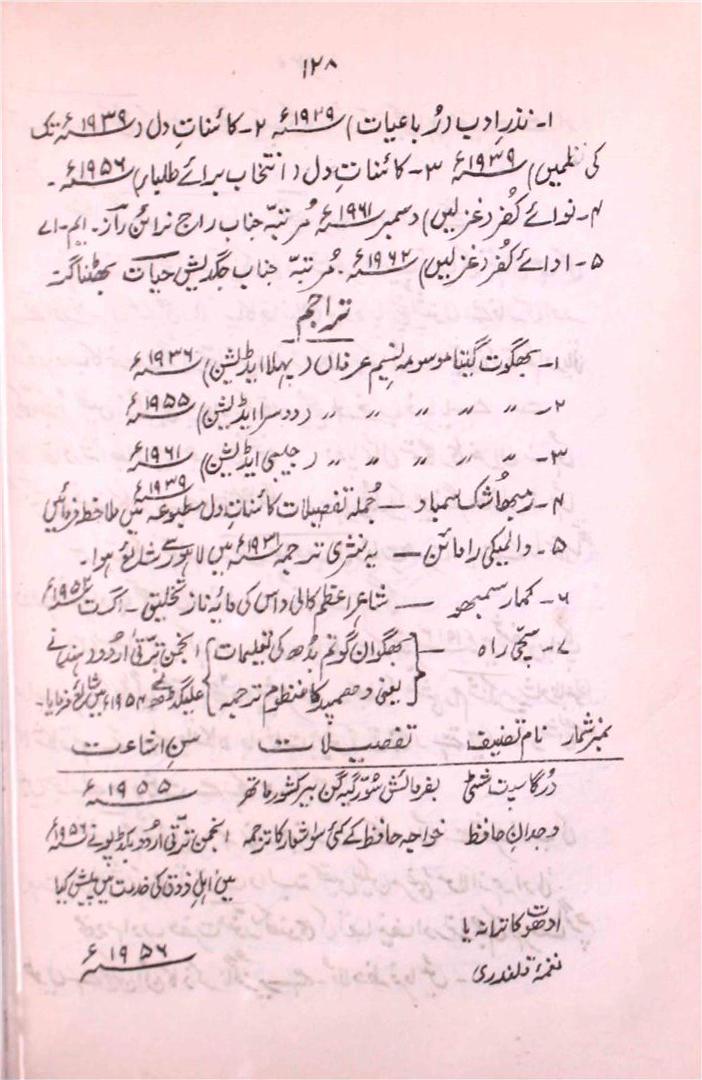 ۱۲۸
۱۔ نذرِ ادب (رُباعیات) ۱۹۲۹ء ۲۔ کائناتِ دل (۱۹۳۹ء تک
کی نظمیں) ۱۹۳۹ء ۳۔ کائناتِ دل (انتخاب برائے طلبا) ۱۹۵۶ء۔
۴۔ نوائے کُفر (غزلیں) دسمبر ۱۹۶۱ء مُرتبہّ جناب راج نرائن رآز۔ ایم۔ اے
۵۔ ادائے کُفر (غزلیں) ۱۹۶۲ء۔ مُرتبہّ جناب جگدیش حیات بھٹناگر
تراجم
۱۔ بھگوت گیتا موسومہ نسیمِ عرفاں (پہلا ایڈیشن) ۱۹۳۶ء
۲۔ 〃 〃 〃 〃 〃 (دوسرا ایڈیشن) ۱۹۵۵ء
۳۔ 〃 〃 〃 〃 〃 (جیبی ایڈیشن) ۱۹۶۱ء
۴۔ رمبھا شُک سمباد — جُملہ تفصیلات کائناتِ دل مطبوعہ ۱۹۳۹ء میں ملاحظہ فرمائیں
۵۔ والمیکی رامائن — یہ نثری ترجمہ ۱۹۳۱ء میں لاہور سے شائع ہوا۔
۶۔ کمار سمبھو — شاعرِ اعظم کالی داس کی مایہ ناز تخلیق۔ اگست ۱۹۵۲ء
۷۔ سچّی راہ — {بھگوان گوتم بُدھ کی تعلیمات} انجمن ترقّیٔ اُردو ہند نے
{یعنی دھمپد کا منظوم ترجمہ} علیگڑھ سے ۱۹۵۴ء میں شائع فرمایا۔
نمبر شمار نام تصنیف تفصیلات سنِ اشاعت
دُرگا سپت شتی بفرمائش شور گیہ گن بیر کشور ماتھر ۱۹۵۵ء
وجدانِ حافظ خواجہ حافظ کے کئی سو اشعار کا ترجمہ انجمن ترقّی اُردو بکڈپو نے ۱۹۵۶ء
میں اہلِ ذوق کی خدمت میں پیش کیا
ادھوت کا ترانہ یا
نغمۂ قلندری ۱۹۵۶ء